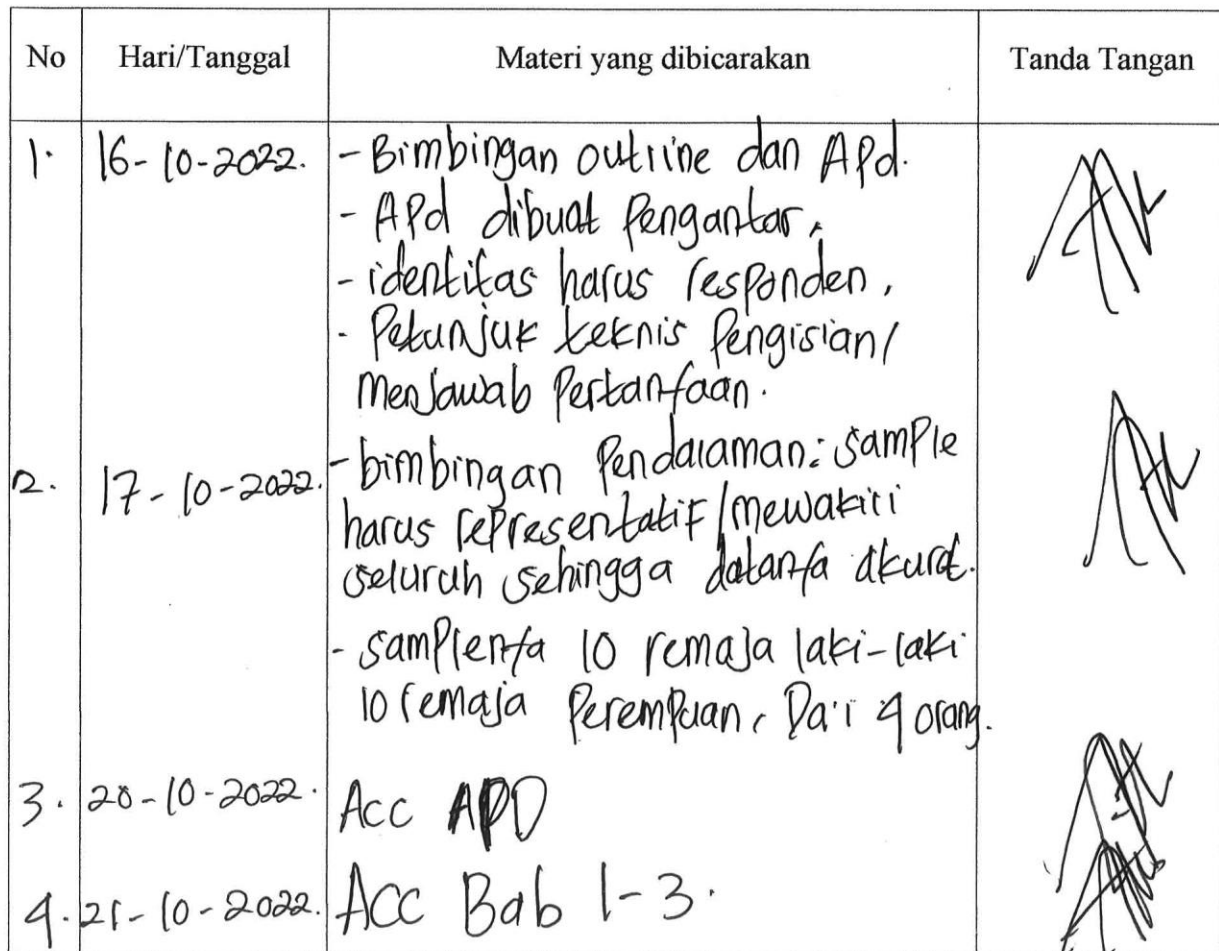 No Hari/Tanggal Materi yang dibicarakan Tanda Tangan
1. 16-10-2022. - Bimbingan outline dan APd.
- APd dibuat Pengantar,
- identitas harus responden,
- Petunjuk teknis Pengisian/
Menjawab Pertanyaan.
2. 17-10-2022. - bimbingan Pendalaman: sample
harus representatif/mewakili
seluruh sehingga datanya akurat.
- samplenya 10 remaja laki-laki
10 remaja Perempuan, Da'i 4 orang.
3. 20-10-2022. Acc APD
4. 21-10-2022. Acc Bab 1-3.